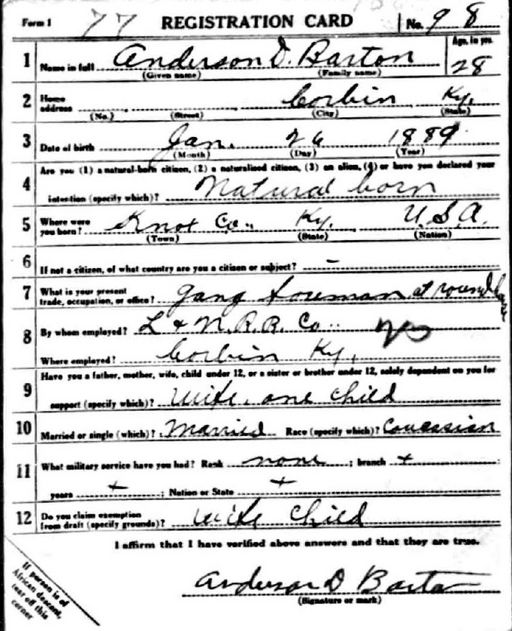 Form 1 77 REGISTRATION CARD No. 98
1 Name in full Anderson D. Barton Age, in yrs. 28
(Given name) (Family name)
2 Home address Corbin Ky.
(No.) (Street) (City) (State)
3 Date of birth Jan. 26 1889
(Month) (Day) (Year)
Are you (1) a natural-born citizen, (2) a naturalized citizen, (3) an alien, (4) or have you declared your
4 intention (specify which)? Natural born
5 Where were you born? Knot Co., Ky. U.S.A.
(Town) (State) (Nation)
6 If not a citizen, of what country are you a citizen or subject? –
7 What is your present trade, occupation, or office? gang at round
8 By whom employed? L & N. R. R. Co.
Where employed? Corbin Ky.
Have you a father, mother, wife, child under 12, or a sister or brother under 12, solely dependent on you for
9 support (specify which)? Wife. one child
10 Married or single (which)? Married Race (specify which)? Caucasian
11 What military service have you had? Rank none ; branch +
years + ; Nation or State +
12 Do you claim exemption from draft (specify grounds)? Wife Child
I affirm that I have verified above answers and that they are true.
Anderson D Barton
(Signature or mark)
If person is of
African descent,
tear off this
corner